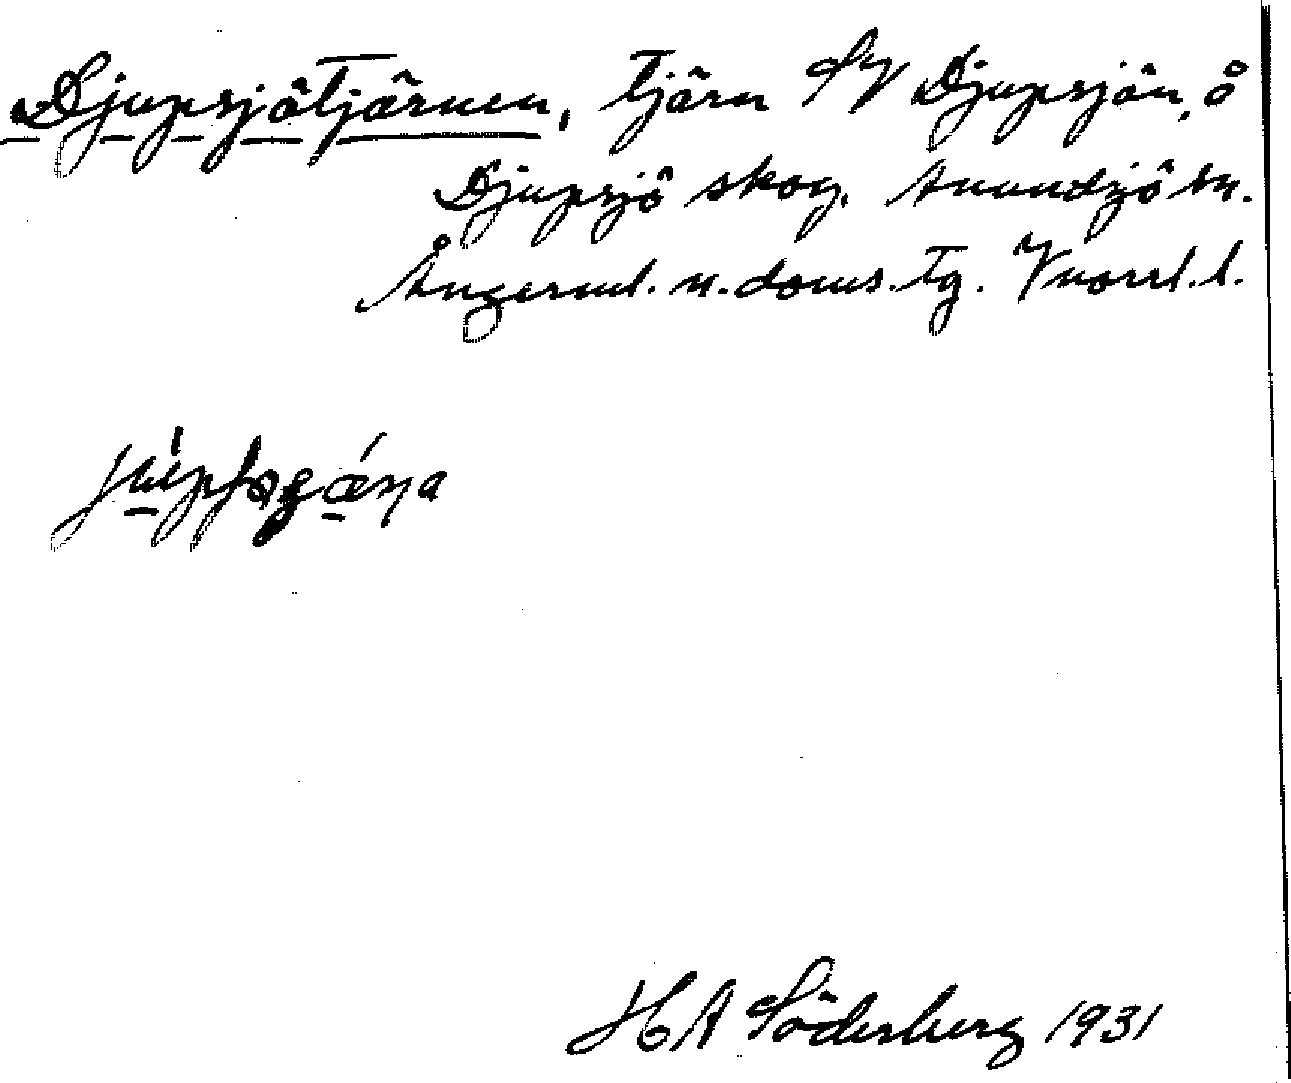 Djupsjötjärnen, tjärn SV Djupsjön, å
Djupsjö skog, Anundsjö sn.
Ångerml. n. doms. Tg. Vnorrl. l.
H A Söderberg 1931